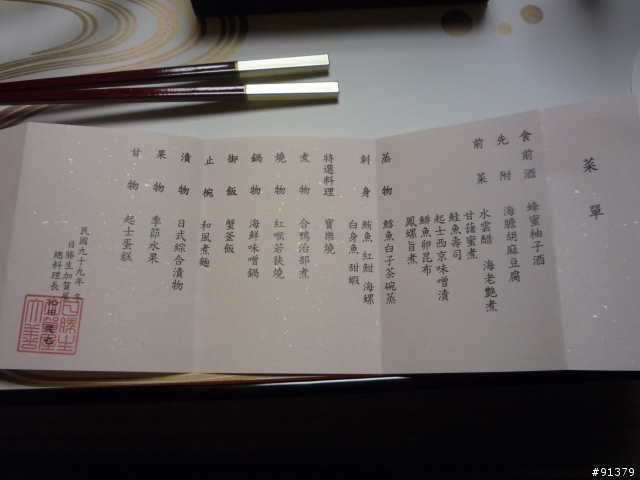 菜單
食前酒 蜂蜜柚子酒
先附 海膽胡麻豆腐
前菜 水雲醋 海老艷煮
甘藷蜜煮
鮭魚壽司
起士西京味噌漬
鯡魚卵昆布
鳳螺旨煮
蒸物 鱈魚白子茶碗蒸
刺身 鮪魚 紅魽 海螺
白身魚 甜蝦
特選料理 寶樂燒
煮物 合鴨治部煮
燒物 紅喉若狹燒
鍋物 海鮮味噌鍋
御飯 蟹釜飯
止椀 和風煮麵
漬物 日式綜合漬物
果物 季節水果
甘物 起士蛋糕
民國九十九年 冬
日勝生加賀屋
總料理長
#91379